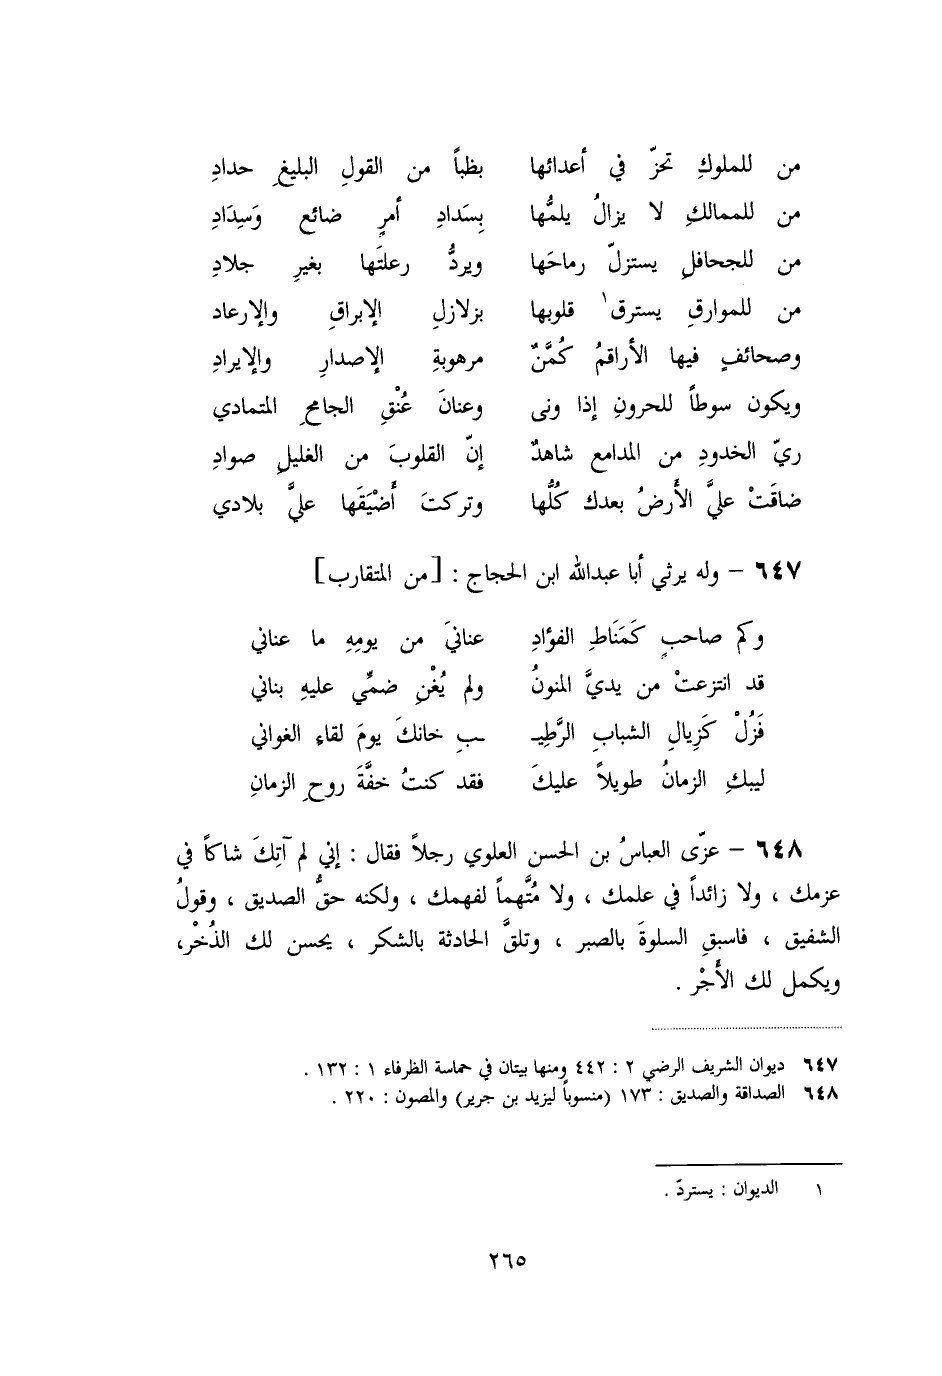 من للملوكِ تحزّ في أعدائها بظباً من القولِ البليغِ حدادِ
من للممالكِ لا يزالُ يلمُّها بِسَدادِ أمرٍ ضائع وَسِدَادِ
من للجحافلِ يستزلّ رماحَها ويردُّ رعلتَها بغيرِ جلادِ
من للموارقِ يسترق١ قلوبها بزلازلِ الإبراقِ والإرعاد
وصحائفٍ فيها الأراقمُ كُمَّنٌ مرهوبةِ الإصدارِ والإيرادِ
ويكون سوطاً للحرونِ إذا ونى وعنانَ عُنْقِ الجامحِ المتمادي
ريّ الخدودِ من المدامع شاهدٌ إنّ القلوبَ من الغليلِ صوادِ
ضاقَتْ عليَّ الأَرضُ بعدك كُلُّها وتركتَ أَضْيَقَها عليَّ بلادي
٦٤٧ – وله يرثي أبا عبدالله ابن الحجاج : [من المتقارب]
وكم صاحبٍ كَمَنَاطِ الفؤادِ عنانيَ من يومِهِ ما عناني
قد انتزعتْ من يديَّ المنونُ ولم يُغْنِ ضمِّي عليهِ بناني
فَزُلْ كَزِيالِ الشبابِ الرَّطِيـ ـبِ خانكَ يومَ لقاءِ الغواني
ليبكِ الزمانُ طويلاً عليكَ فقد كنتُ خفَّةَ روحِ الزمانِ
٦٤٨ – عزّى العباسُ بن الحسن العلوي رجلاً فقال : إني لم آتِكَ شاكاً في
عزمك ، ولا زائداً في علمك ، ولا مُتَّهماً لفهمك ، ولكنه حقُّ الصديق ، وقولُ
الشفيق ، فاسبقِ السلوةَ بالصبر ، وتلقَّ الحادثة بالشكر ، يحسن لك الذُخْر،
ويكمل لك الأَجْر .
٦٤٧ ديوان الشريف الرضي ٢ : ٤٤٢ ومنها بيتان في حماسة الظرفاء ١ : ١٣٢ .
٦٤٨ الصداقة والصديق : ١٧٣ (منسوباً ليزيد بن جرير) والمصون : ٢٢٠ .
١ الديوان : يستردّ .
٢٦٥